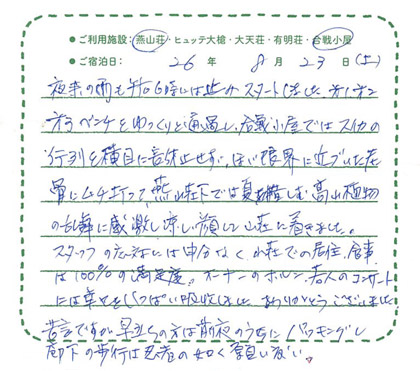 ●ご利用施設：燕山荘・ヒュッテ大槍・大天荘・有明荘・合戦小屋
●ご宿泊日： 26 年 8 月 23 日（土）
夜来の雨も午前6時には止みスタートしました。
ベンチをゆっくりと通過し、合戦小屋ではスイカの
行列を横目に
ムチ打って、燕山荘下では夏を惜しむ高山植物
の乱舞に感激し涼しい顔して山荘に着きました。
スタッフの応対には申分なく山荘での居住、食事
は100%の満足度。オーナーのホルン、若人のコンサート
にはいっぱい吸収しました ありがとうございました
苦言ですが早立ちの方は前夜のうちにパッキングし
廊下の歩行は忍者の如く願い度い。